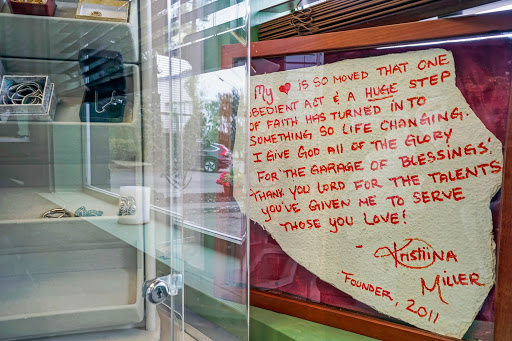 My ❤ is so moved that one
obedient act & a huge step
of faith has turned in to
something so life changing.
I give God all of the glory
for the Garage of Blessings.
Thank you Lord for the talents
you've given me to serve
those you love!
- Kristiina
Miller
Founder, 2011